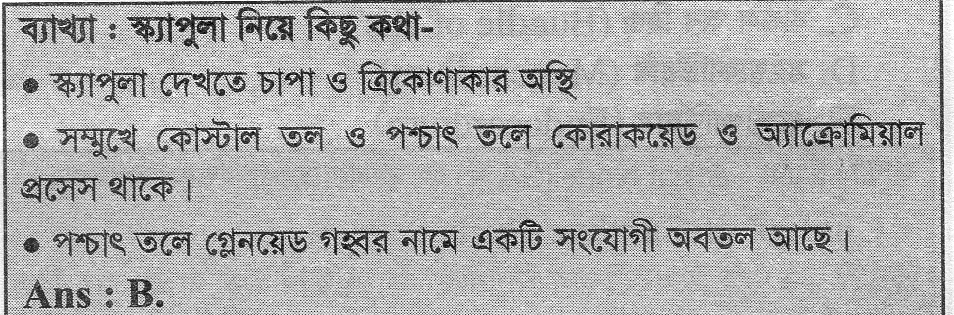 ব্যাখ্যা : স্ক্যাপুলা নিয়ে কিছু কথা-
● স্ক্যাপুলা দেখতে চাপা ও ত্রিকোণাকার অস্থি
● সম্মুখে কোস্টাল তল ও পশ্চাৎ তলে কোরাকয়েড ও অ্যাক্রোমিয়াল
প্রসেস থাকে।
● পশ্চাৎ তলে গ্লেনয়েড গহ্বর নামে একটি সংযোগী অবতল আছে।
Ans : B.